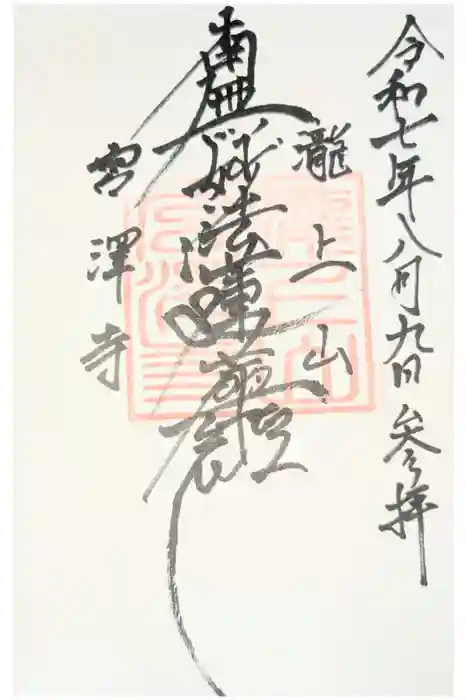 令和七年八月九日 参拝
瀧上山
南無妙法蓮華経
宮澤寺